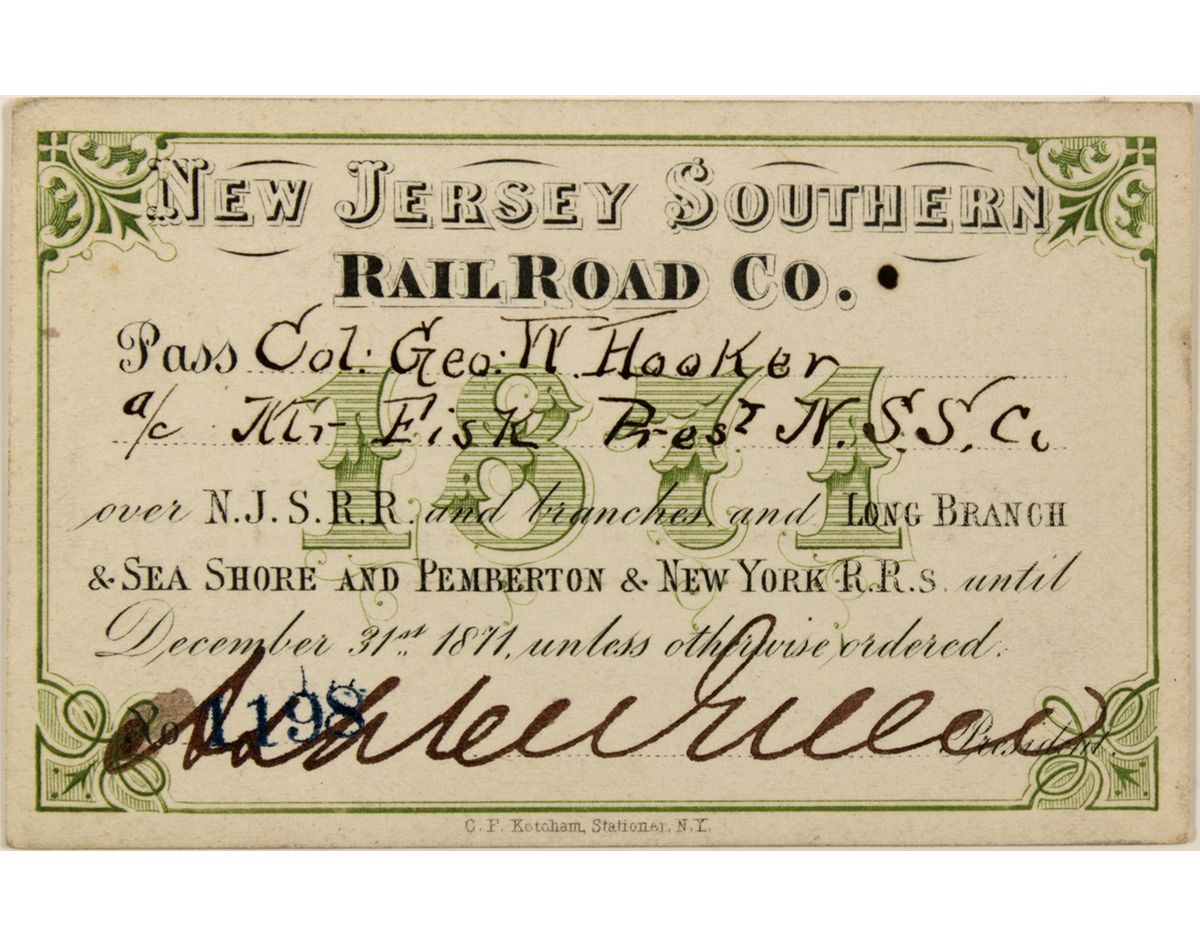 NEW JERSEY SOUTHERN
RAILROAD CO.
1871
Pass Col: Geo: W. Hooker
a/c Mr Fisk Prest N.S.S.Co
over N.J.S.R.R. and branches, and LONG BRANCH
& SEA SHORE AND PEMBERTON & NEW YORK R.R.s until
December 31st 1871, unless otherwise ordered.
No 1198 President.
C. F. Ketcham, Stationer, N.Y.